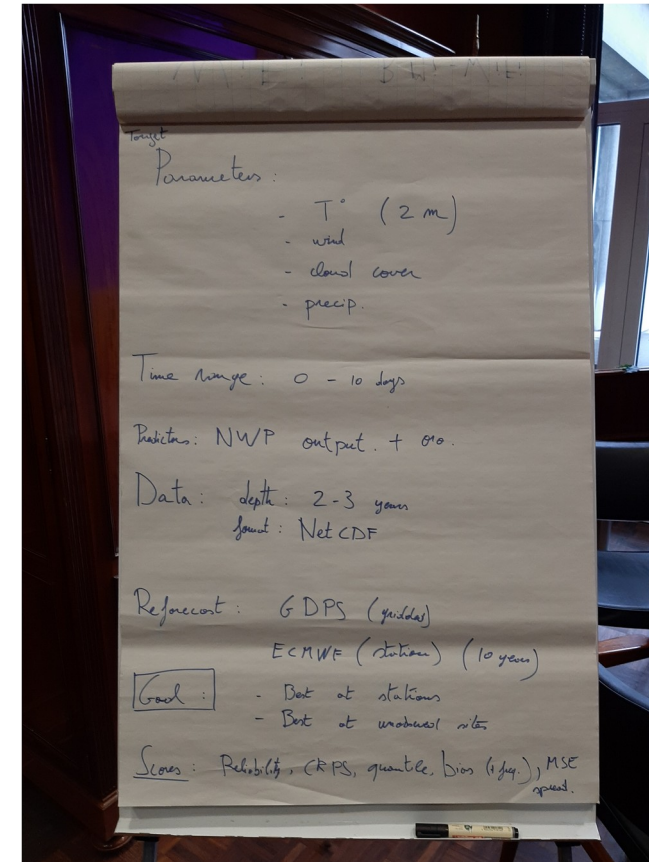 Target
Parameters :
- T° (2 m)
- wind
- cloud cover
- precip.
Time range : 0 - 10 days
Predictors : NWP output. + oro.
Data : depth : 2 - 3 years
format : NetCDF
Reforecast : GDPS (gridded)
ECMWF (station) (10 years)
Goal : - Best at stations
- Best at unobserved sites
Scores : Reliability, CRPS, quantile, bias (+ freq.), MSE
spread.